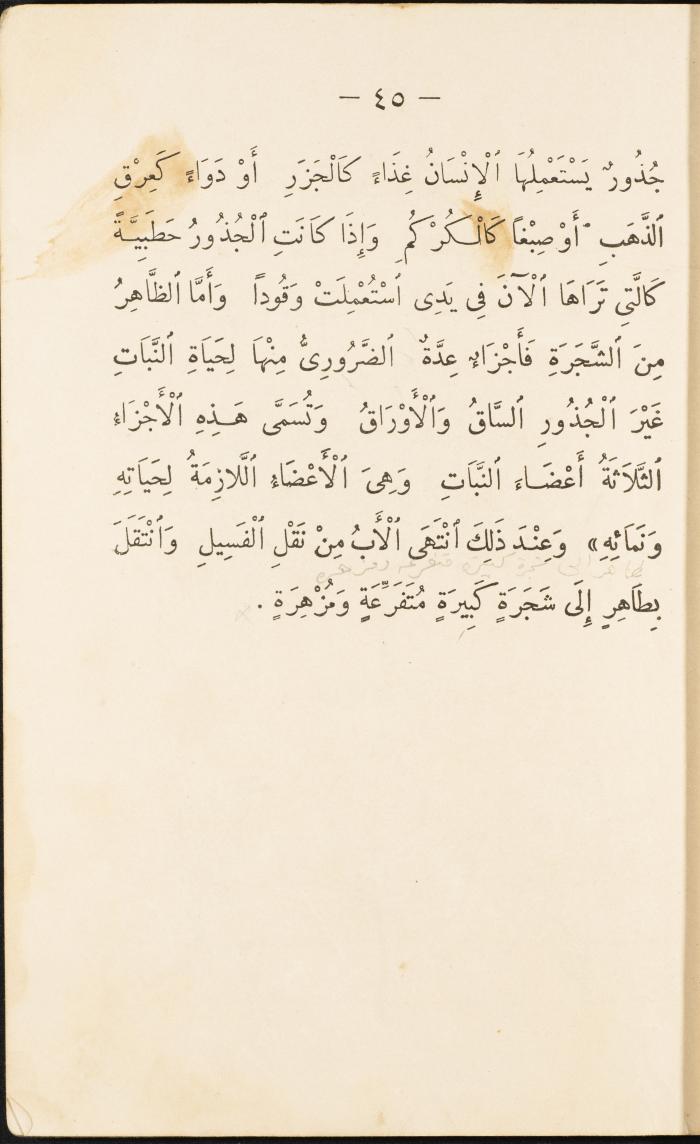 — ٤٥ —
جُذُورٌ يَسْتَعْمِلُهَا ٱلْإِنْسَانُ غِذَاءً كَٱلْجَزَرِ أَوْ دَوَاءً كَعِرْقِ
ٱلذَّهَبِ أَوْ صِبْغاً كَٱلْكُرْكُمِ وَإِذَا كَانَتِ ٱلْجُذُورُ حَطَبِيَّةً
كَالَّتِي تَرَاهَا ٱلْآنَ فِي يَدِى ٱسْتُعْمِلَتْ وَقُوداً وَأَمَّا ٱلظَّاهِرُ
مِنَ ٱلشَّجَرَةِ فَأَجْزَاءٌ عِدَّةٌ ٱلضَّرُورِىُّ مِنْهَا لِحَيَاةِ ٱلنَّبَاتِ
غَيْرَ ٱلْجُذُورِ ٱلسَّاقُ وَٱلْأَوْرَاقُ وَتُسَمَّى هَذِهِ ٱلْأَجْزَاءُ
ٱلثَّلَاثَةُ أَعْضَاءَ ٱلنَّبَاتِ وَهِىَ ٱلْأَعْضَاءُ ٱللَّازِمَةُ لِحَيَاتِهِ
وَنَمَائِهِ» وَعِنْدَ ذَلِكَ ٱنْتَهَى ٱلْأَبُ مِنْ نَقْلِ ٱلْفَسِيلِ وَٱنْتَقَلَ
بِطَاهِرٍ إِلَى شَجَرَةٍ كَبِيرَةٍ مُتَفَرِّعَةٍ وَمُزْهِرَةٍ .